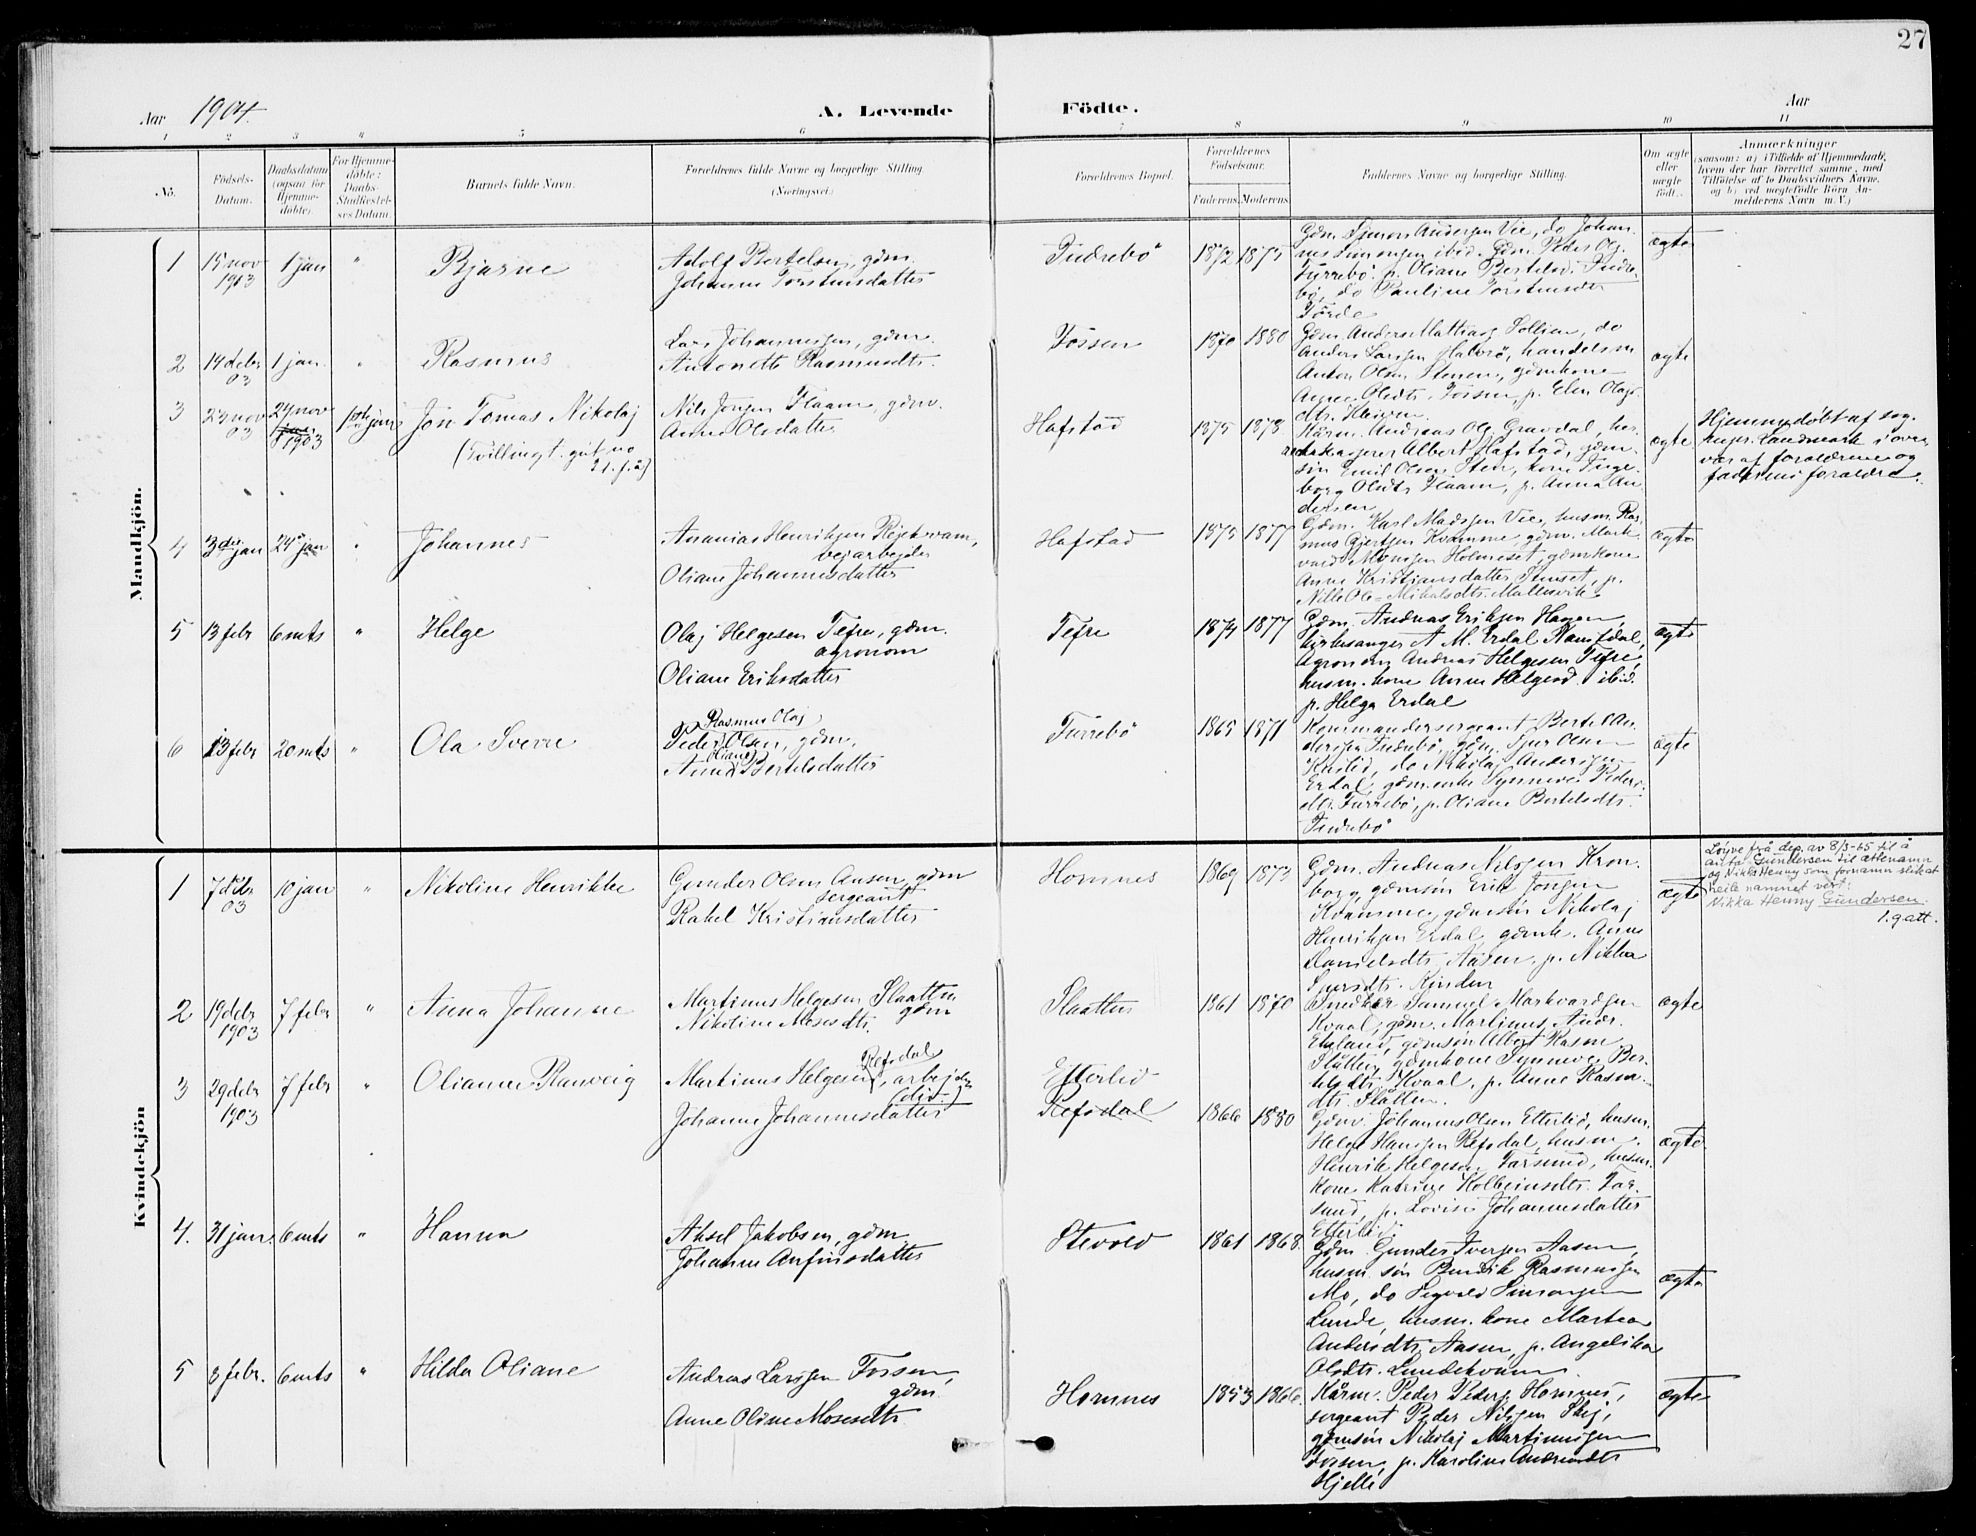 27
Aar 1904. A. Levende Födte. Aar
1 2 3 4 5 6 7 8 9 10 11
No.
Födsels-
Datum.
Daabsdatum
(ogsaa for
Hjemme-
döbte).
For Hjemme-
döbte:
Daabs-
Stadfæstel-
ses Datum.
Barnets fulde Navn.
Forældrenes fulde Navne og borgerlige Stilling.
(Næringsvei.)
Forældrenes Bopæl.
Forældrenes
Födselsaar.
Faderens. Moderens.
Faddernes Navne og borgerlige Stilling.
Om ægte
eller
uægte
födt.
Anmærkninger
(saasom: a) i Tilfælde af Hjemmedaab,
hvem der har forrettet samme, med
Tilföielse af to Daabsvidners Navne,
og b) ved uægtefödte Börn An-
melderens Navn m. V.)
Mandkjön.
1 15 nov 1903 1 jan " Bjarne
Adolf Bertelsen, gdm.
Johanne Torsteinsdatter
Indrebö 1872 1875
Gdm. Simon Andersen Vie, do Johan-
nes Simonsen ibid. Gdm. Peder Ols.
Furrebö. p. Oliane Bertelsd. Indre-
bö, do Pauline Torsteinsdtr
Förde
ægte
2 14 debr 03 1 jan. " Rasmus
Lars Johannessen, gdm.
Antonette Rasmusdtr.
Fossen 1870 1880
Gdm. Anders Mattiass. Sollien, do
Anders Larssen Halbrö, handelsm
Anton Olsen Stenen, gdmkone
Anne Olsdtr. Fossen, p. Elen Olags
dtr. Haugen
ægte
3 23 nov 03 24 nov 1903 1ste jan Jon Tomas Nikolaj
(Tvilling t. gut no
21. f. å)
Nils Jonsen Flaam, gdm.
Anne Olsdatter
Hafstad 1875 1878
Kårm. Andreas Ols. Gravdal, hes-
Albert Hafstad, gdm.
sön Emil Olsen Sten, kone Inge-
borg Olsdtr Flaam, p. Anna An-
dersen
ægte
Hjemmedøbt af sog-
nepr. Landmark i over-
vær af forældrene og
faderens forældre.
4 3die jan 24de jan " Johannes
Ananias Henriksen Rejekvam,
vejarbejder
Oliane Johannesdatter
Hafstad 1875 1877
Gdm. Karl Madssen Vie, husm. Ras-
mus Gjertsen Kvamme, gdm. Mark-
vard Monssen Holmeset, gdmkone
Anne Kristjansdatter Stenset, p.
Nille Ole-Mikalsdtr. Mallesvik
ægte
5 13 febr 6 mts " Helge
Olaj Helgesen Tefre, gdm.
agronom
Oliane Eriksdatter
Tefre 1874 1877
Gdm. Andreas Eriksen Hagen,
kirkesanger A. M. Erdal Namsdal,
Agronom Andreas Helgesen Tefre,
husm. kone Anne Helgesd. ibid.
p. Helga Erdal
ægte
6 13 febr 20 mts " Ola Sverre
Rasmus Olaj
Peder Olsen, gdm.
(Oliane)
Anna Bertelsdatter
Furrebö 1865 1871
Kommandersergeant Bertel An-
derssen Indrebö, gdm. Sjur Olsen
Kuslid, do Nikolaj Anderssen
Erdal, gdm.enke Synneve Peders-
dtr. Furrebö, p. Oliane Bertelsdtr.
Indrebö
ægte
Kvindekjön
1 7de debr 03 10 jan " Nikoline Henrikke
Gunder Olsen Aasen, gdm
sergeant
Rakel Kristiansdatter
Hornnes 1869 1873
Gdm. Andreas Nilssen Kron-
borg, gdmsön Erik Jonsen
Kvamme, gdmsön Nikolaj
Henriksen Erdal, gdmk. Anne
Danielsdtr. Aasen, p. Nikka
Sjursdtr. Kinden
ægte
Løyve frå dep. av 8/3-65 til å
anta Gundersen til ættenamn
og Nikka Henny som fornamn slik at
heile namnet vert:
Nikka Henny Gundersen.
1. gatt.
2 19 debr 1903 7 febr " Anna Johanne
Martinus Helgesen Slaatten
gdm
Nikoline Mosesdtr.
Slaatten 1861 1870
Snedker Samuel Markvardsen
Kvaal, gdm. Martinus Andr.
Ekeland, gdmsön Albert Rasm
Slåtten, gdmkone Synneve Ber-
telsdtr Kvaal, p. Anne Rasm.
dtr. Slåtten.
ægte
3 29 debr 1903 7 febr " Olianna Ranveig
Refsdal
Martinus Helgesen, arbejder
(div.)
Johanne Johannesdatter
Etterlid
Refsdal 1866 1880
Gdm. Johannes Olsen Etterlid, husm.
Helge Hanssen Refsdal, husm.
Henrik Helgesen Farsund, husm.
kone Katrine Kolbeinsdtr. Far-
sund, p. Lovise Johannesdatter
Etterlid
ægte
4. 31 jan. 6 mts " Hanna
Aksel Jakobsen, gdm
Johanne Anfinsdatter
Stevold 1861 1868.
Gdm. Gunder Iversen Aasen,
husm. sön Bendik Rasmussen
Mo, do Sigvald Simonsen
Lunde, husm. kone Martea
Andersdtr. Aasen, p. Angelika
Olsdtr. Lundekvam
ægte
5 3 febr. 6 mts " Hilda Oliane
Andreas Larssen Fossen,
gdm.
Anne Oline Mosesdtr
Hornnes 1853 1866.
Kårm. Peder Peders. Hornnes,
sergeant Peder Nilssen Skej,
gdmsön Nikolaj Martinussen
Fossen, p. Karoline Andreasdtr
Hjelle
ægte